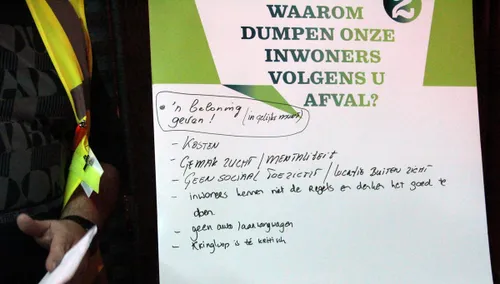 2
WAAROM
DUMPEN ONZE
INWONERS
VOLGENS U
AFVAL?
• 'n beloning
geven! (in gelijke
- KOSTEN
- GEMAKZUCHT / MENTALITEIT
- GEEN SOCIAAL TOEZICHT / LOCATIE BUITEN ZICHT
- inwoners kennen niet de regels en denken het goed te
doen.
- geen auto /aanhangwagen
- Kringloop is te kritisch